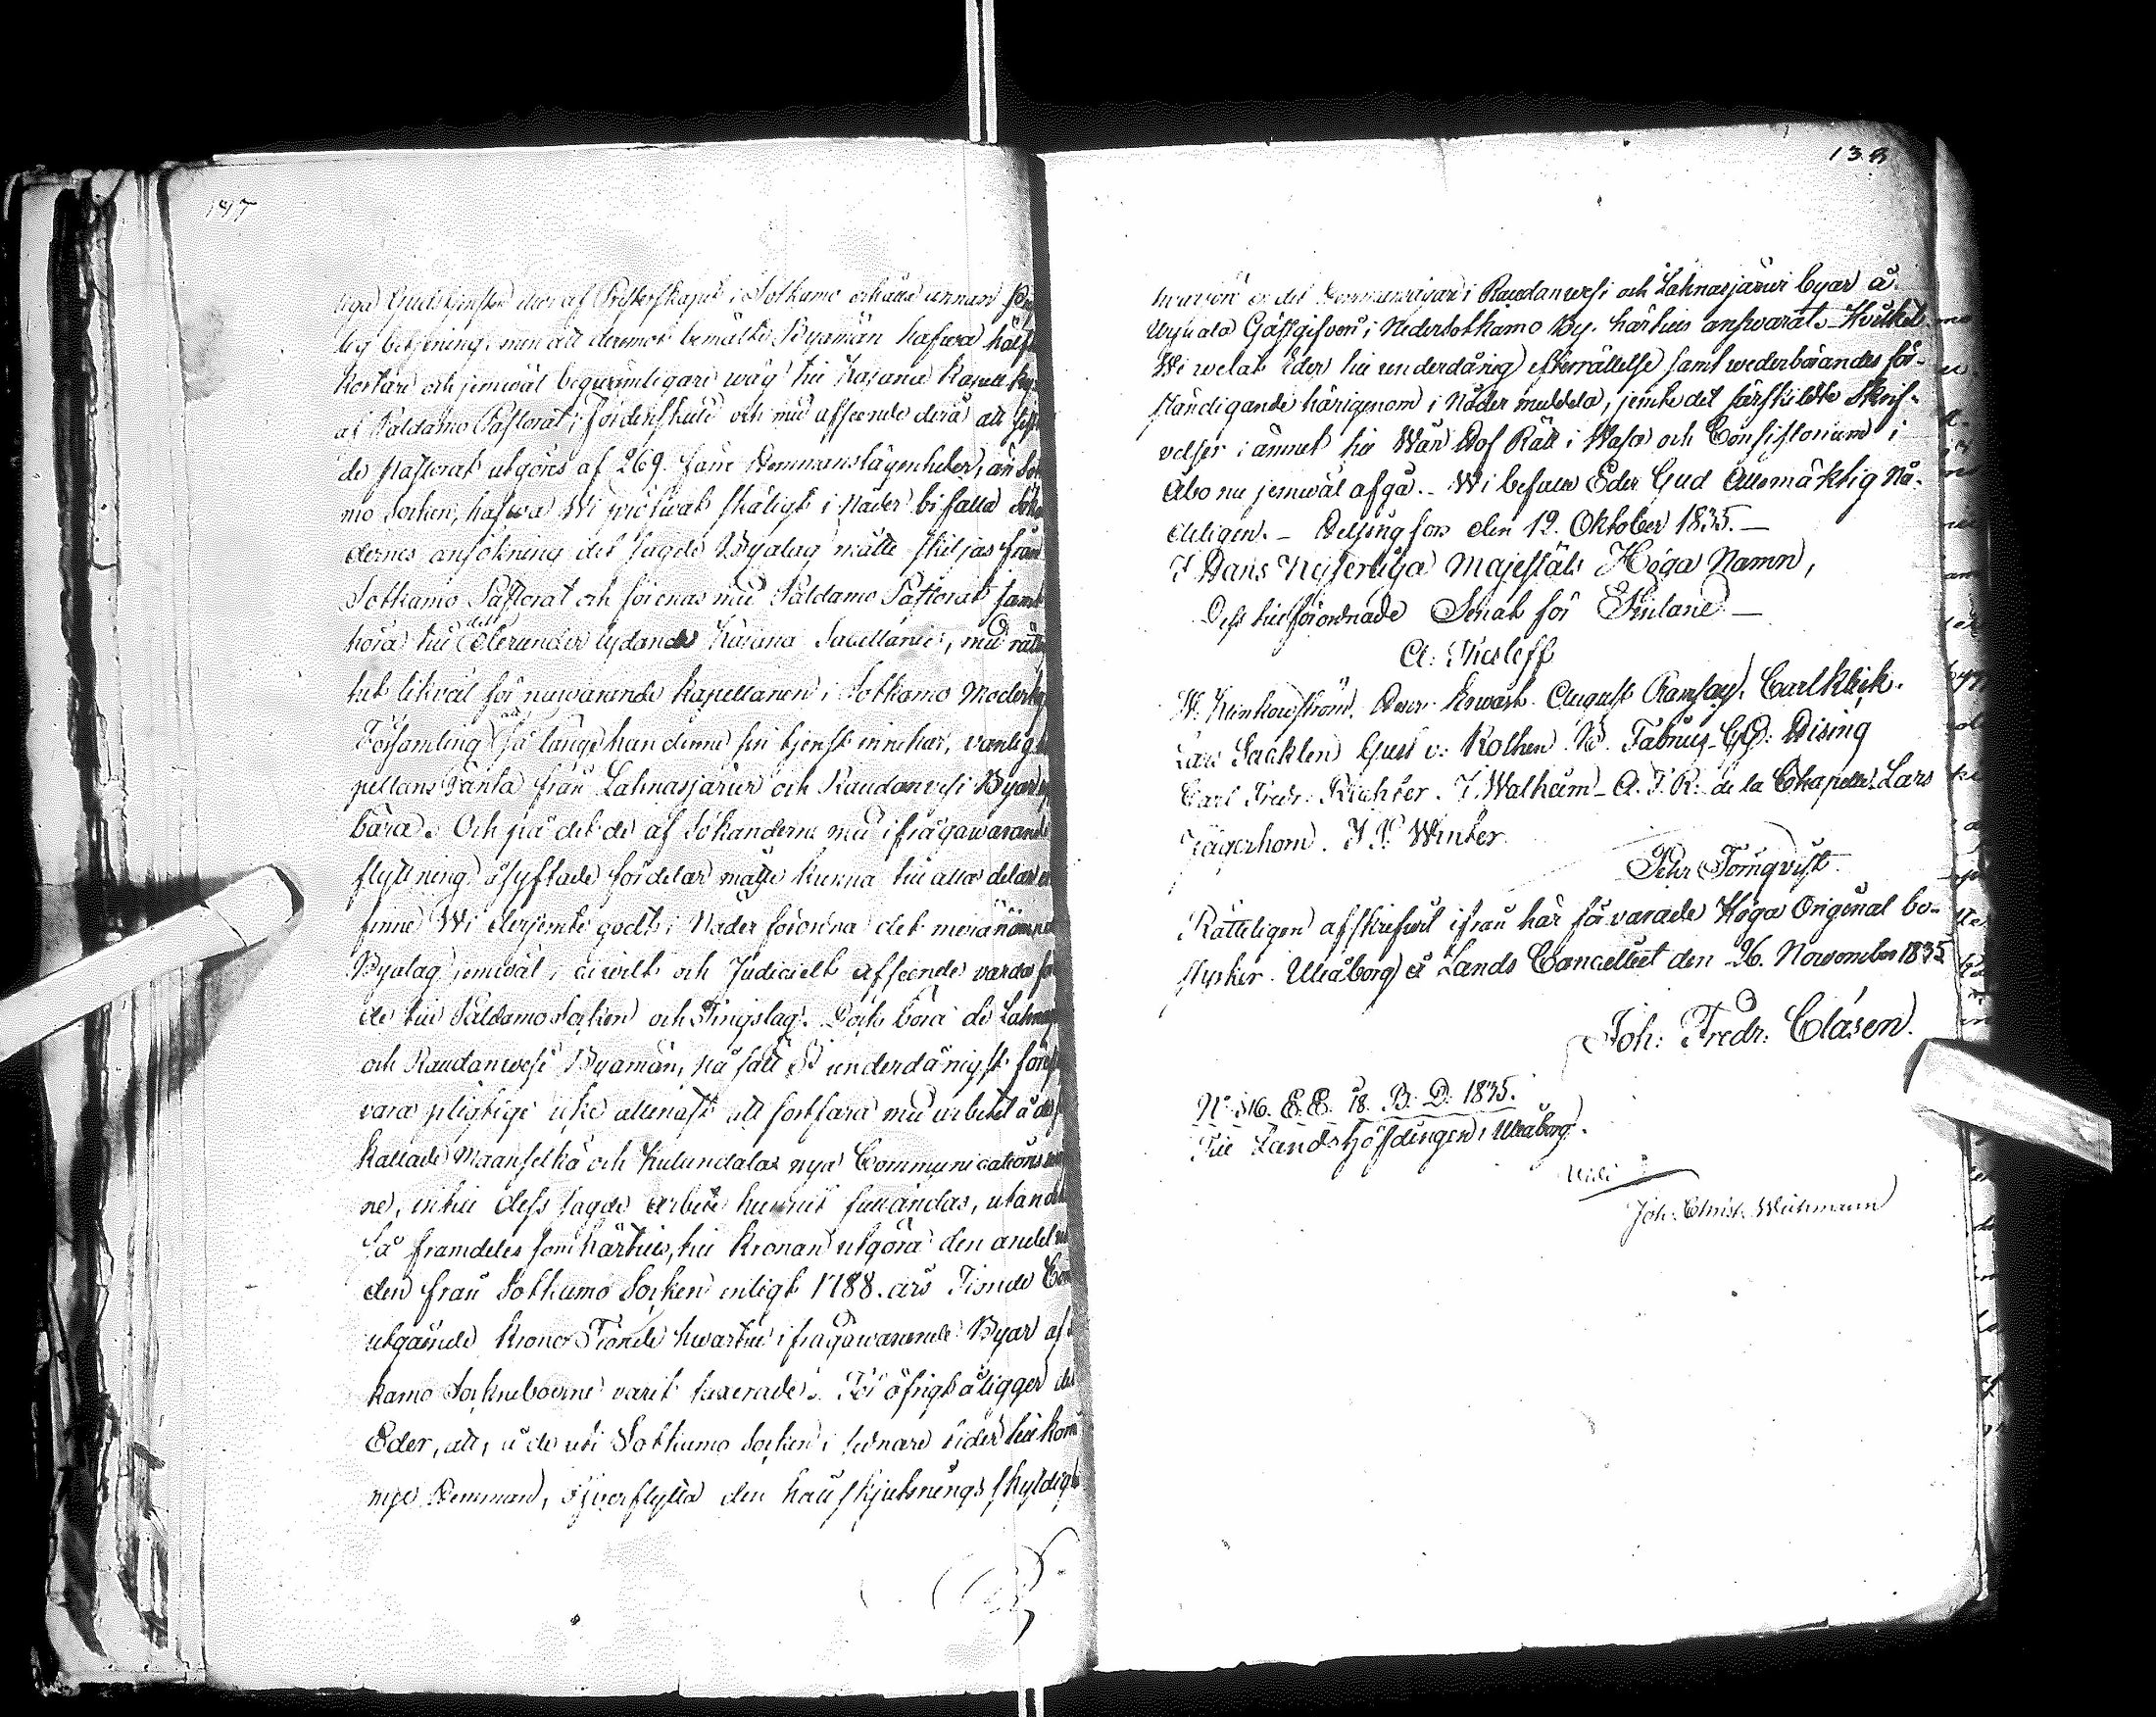 137
liga Gudstjensten eller af Presterskapet i Sotkamo erhålla annan
lig betjening, men att deremot bemälte Byamän hafwa hälft
kortare och jemwäl beqvämligare wäg till Kajana Kapell
af Paldamo Pastorat; Fördenskull och med afseende derå att
de Pastorat utgöres af 269. färre Hemmanslägenheter, än Sot
mo Socken, hafwa Wi pröfwat skäligt i Nåder bifalla Sökan
dernes ansökning det sagde Byalag måtte skiljas från
Sotkamo Pastorat och förenas med Paldamo Pastorat samt
höra till det derunder lydande Kajana Sacellanie, med rättig
het likväl för nuwarande Kapellanen i Sotkamo Moderkyrko
Församling, så länge han denna sin tjenst innehar, vanlig
pellans Ränta från Lahnasjärwi och Raudanvesi Byar
bära. Och på det de af Sökanderne med ifrågawarande
flyttning åsyftade fördelar måtte kunna till alla delar
finne Wi derjemte godt i Nåder förordna det meränämnde
Byalag jemwäl i civilt och Judicielt afseende varda
de till Paldamo Socken och Tingslag. Dock böra de Lahnas
och Raudanwesi Byamän, på sätt de underdånigst före
vara pligtige icke allenast att fortfara med arbetet å de
kallade Maanselkä och Kulundalax nya Communications
ne, intill dess sagde arbete hunnit fulländas, utan de
så framdeles som härtills, till Kronan utgöra den andel
den från Sotkamo Socken enligt 1788. års Tionde
utgående Krono Tionde hwartill ifrågawarande Byar af
kamo Sockneboerne varit taxerade. För öfrigt åligger det
Eder, att, å de uti Sotkamo Socken i sednare tider tillkom
nye Hemman, öfverflytta den hållskjutsningsskyldig
138
Hemmansägare i Raudanwesi och Lahnasjärwi byar å
Gästgifveri i Nedersotkamo By, härtills answarat. Hvilket
Wi welat Eder till underdånig efterrättelse samt wederbörandes för-
ständigande härigenom i Nåder meddela, jemte det särskildte Skrif-
velser i ämnet till Wår Hof Rätt i Wasa och Consistorium i
Åbo nu jemwäl afgå. Wi befalla Eder Gud Allsmäktig Nå-
deligen. Helsingfors den 12. Oktober 1835.
I Hans Kejserliga Majestäts Höga Namn,
Dess tillförordnade Senat för Finland
A: Thesleff
W. Klinkowström. Henr. Kowast. August Ramsay. Carl Klick.
Lars Sacklen Gust v: Kothen. W. Falinus. GG: Hising
Carl Fredr: Richter. J. Walheim. A. F. R: de la Chapelle. Lars
Jägerhorn. J P. Winter
Pehr Törnqvist.
Rätteligen afskrifwit ifrån här förvarade Höga Original be-
styrker. Uleåborg å Lands Cancelliet den 26. November 1835.
Joh: Fredr: Clásen.
N:o 516. E.E. 18. B. D. 1835.
Till Landshöfdingen i Uleåborg.
Vidi
Joh: Christ: Weckmann